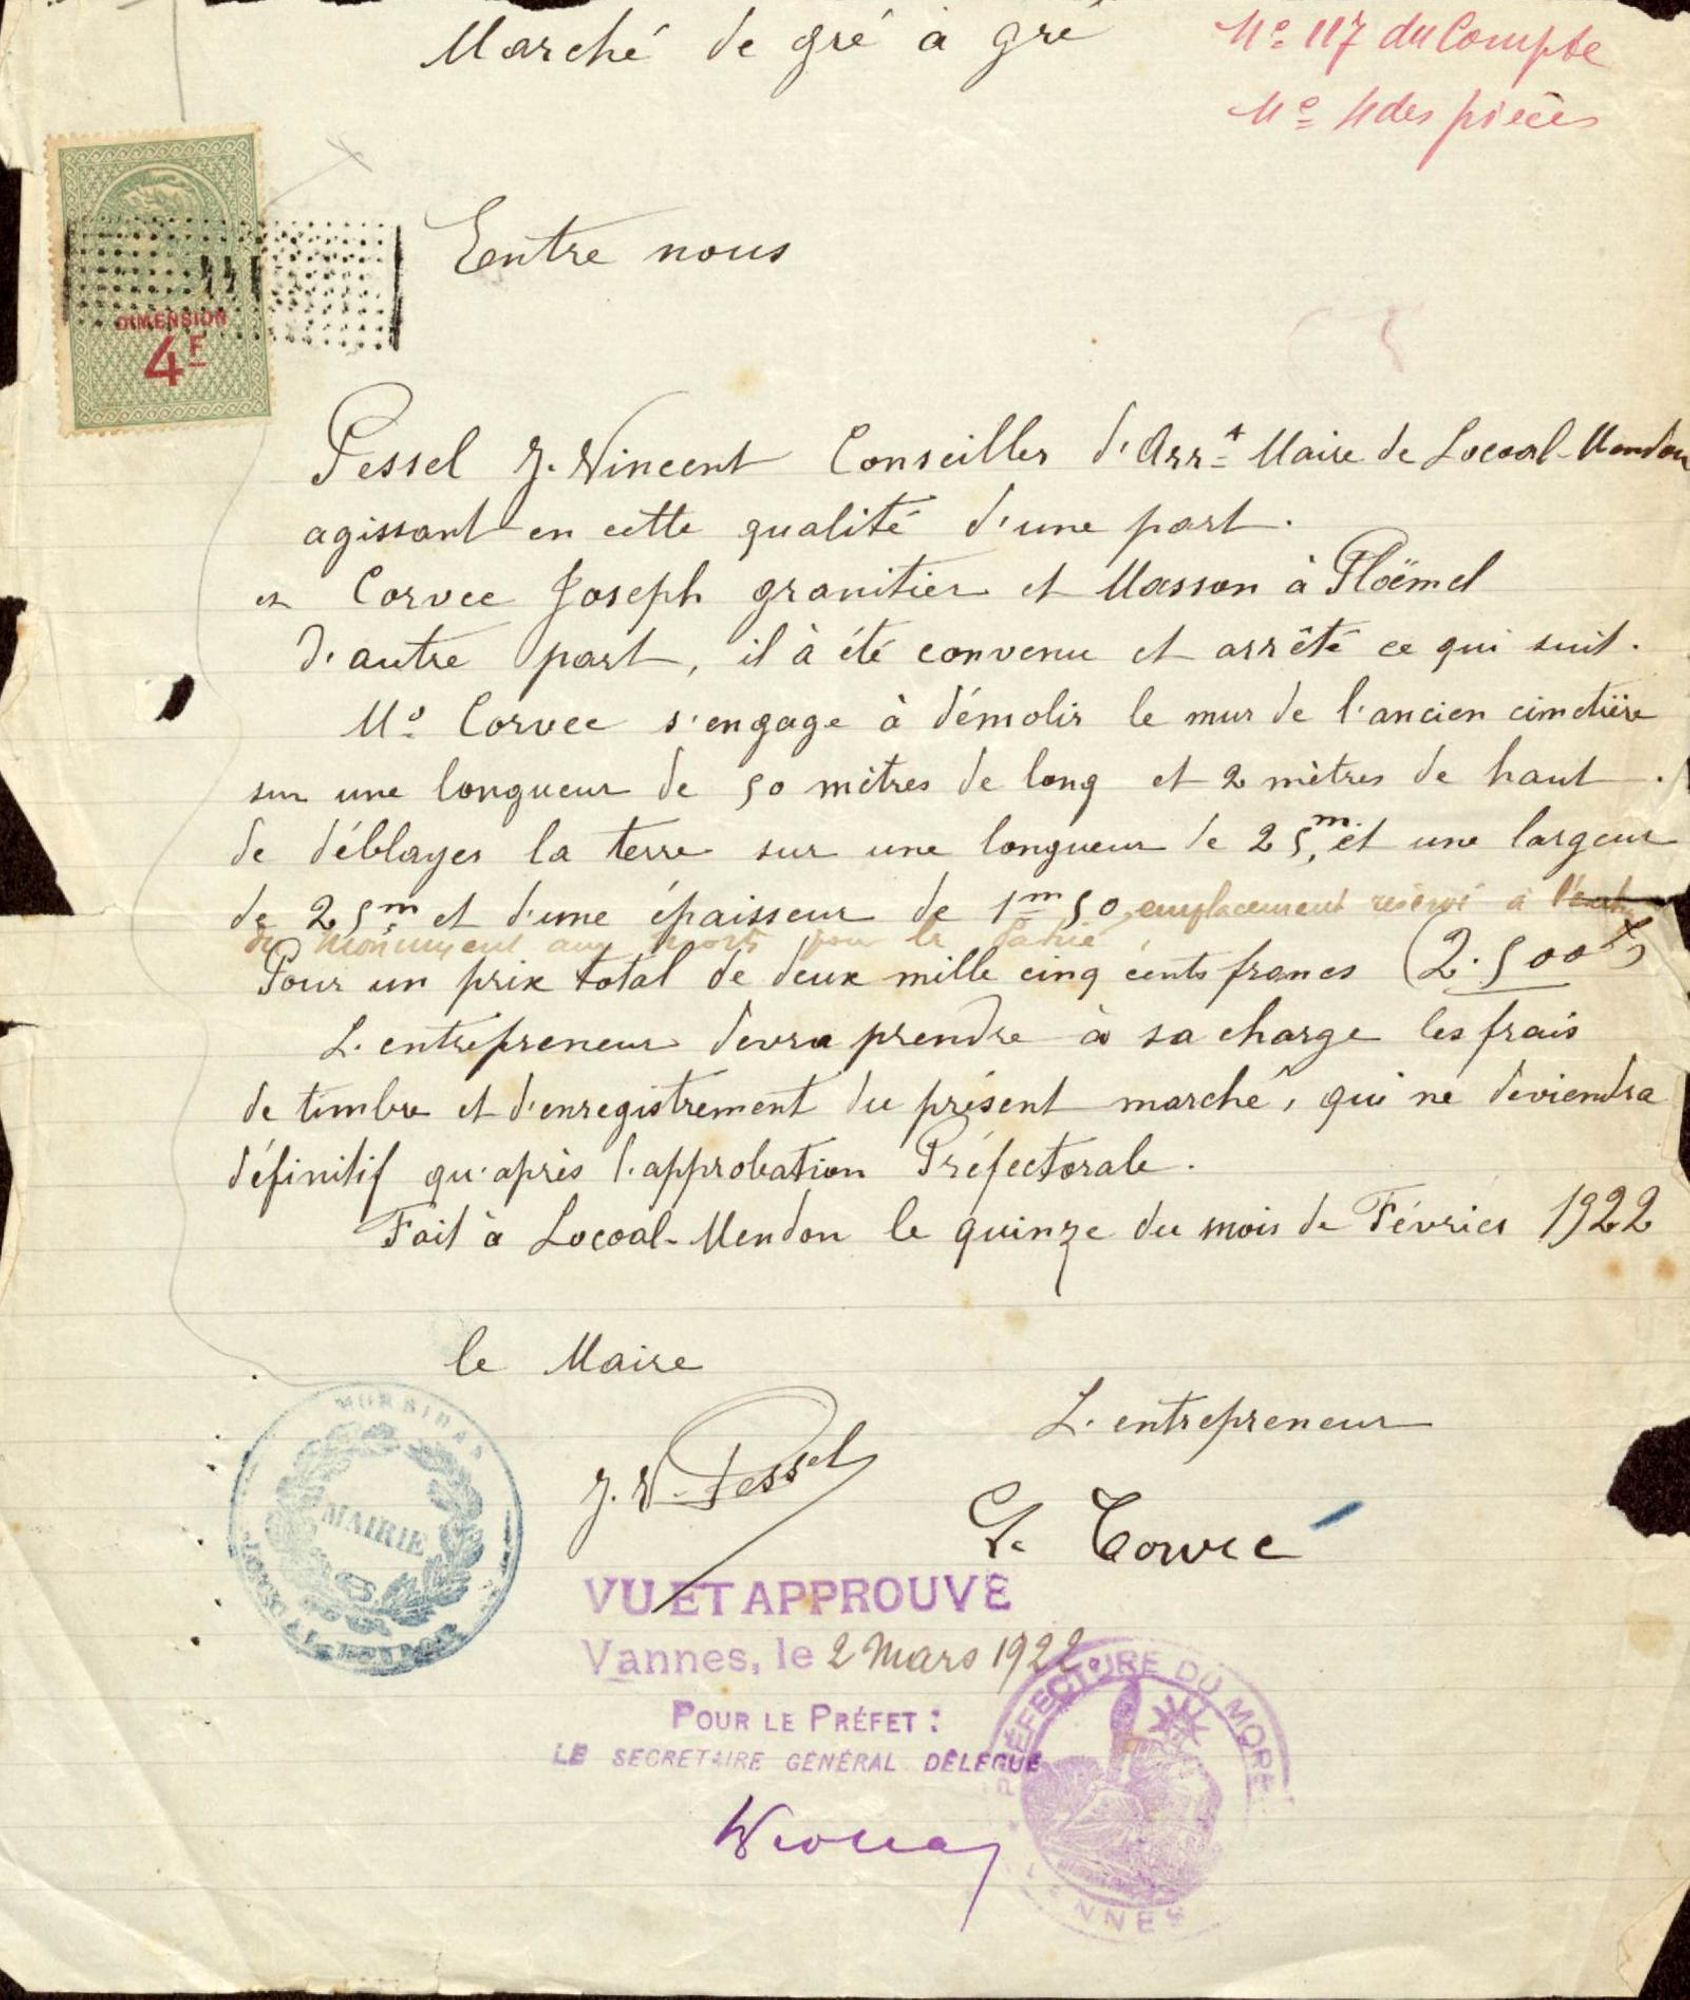 Marché de gré à gré
No 117 du Compte
No 4 des pièces
DIMENSION
4F
Entre nous
Pessel J. Vincent Conseiller d'Arrt Maire de Locoal-Mendon
agissant en cette qualité d'une part.
et Corvec Joseph granitier et Masson à Ploëmel
d'autre part, il à été convenu et arrêté ce qui suit.
Mr Corvec s'engage à démolir le mur de l'ancien cimetière
sur une longueur de 50 mètres de long et 2 mètres de haut.
de déblayer la terre sur une longueur de 25m. et une largeur
de 25m et d'une épaisseur de 1m50, emplacement réservé à
du monument aux morts pour la Patrie,
Pour un prix total de deux mille cinq cents francs (2.500f)
L'entrepreneur devra prendre à sa charge les frais
de timbre et d'enregistrement du présent marché, qui ne deviendra
définitif qu'après l'approbation Préfectorale.
Fait à Locoal-Mendon le quinze du mois de Février 1922
le Maire
L'entrepreneur
MORBIHAN
MAIRIE
J. V. Pessel
VU ET APPROUVÉ
Vannes, le 2 Mars 1922.
POUR LE PRÉFET :
LE SECRETAIRE GÉNÉRAL DÉLÉGUÉ
PRÉFECTURE DU MORB
VANNES